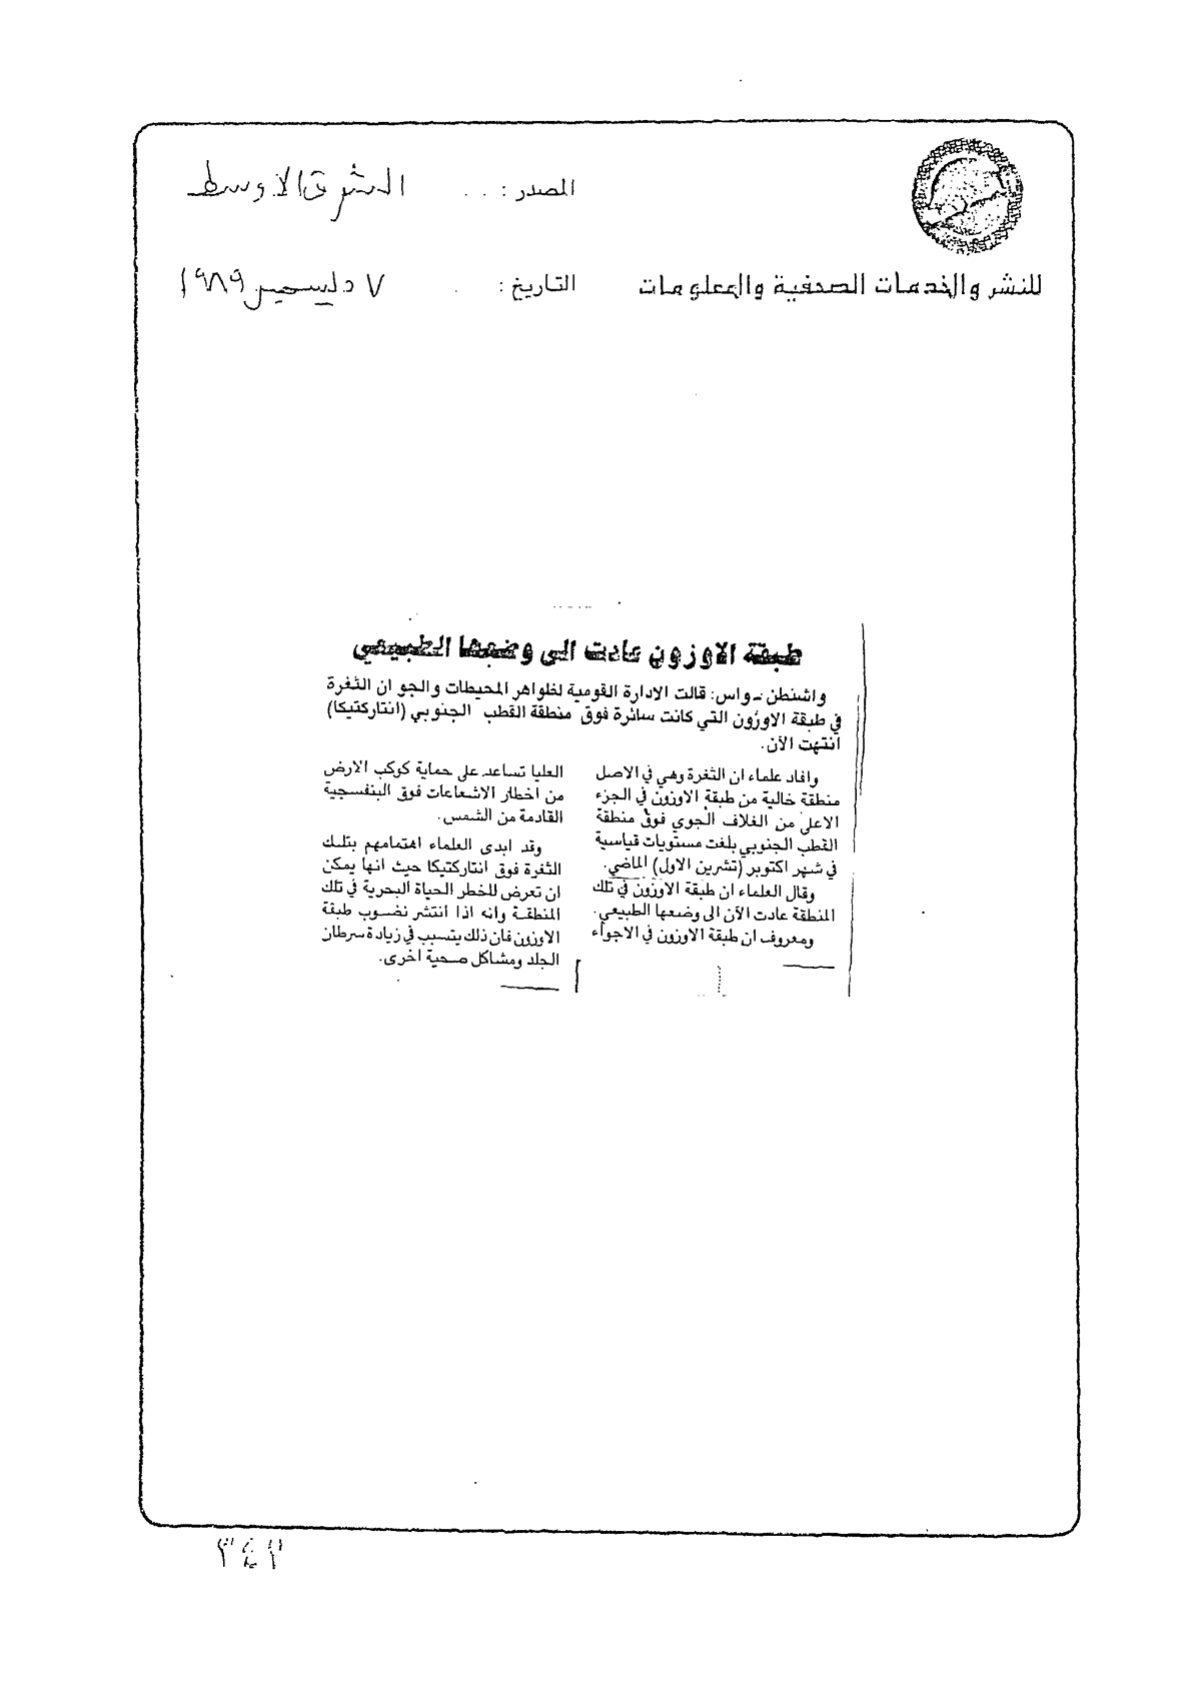 المصدر : . . الشرق الاوسط
للنشر والخدمات الصحفية والمعلومات
التاريخ : . ٧ ديسمبر ١٩٨٩
طبقة الاوزون عادت الى وضعها الطبيعي
واشنطن ـ واس: قالت الادارة القومية لظواهر المحيطات والجو ان الثغرة
في طبقة الاوزون التي كانت سائرة فوق منطقة القطب الجنوبي (انتاركتيكا)
انتهت الآن.
وافاد علماء ان الثغرة وهي في الاصل
منطقة خالية من طبقة الاوزون في الجزء
الاعلى من الغلاف الجوي فوق منطقة
القطب الجنوبي بلغت مستويات قياسية
في شهر اكتوبر (تشرين الاول) الماضي.
وقال العلماء ان طبقة الاوزون في تلك
المنطقة عادت الآن الى وضعها الطبيعي.
ومعروف ان طبقة الاوزون في الاجواء
العليا تساعد على حماية كوكب الارض
من اخطار الاشعاعات فوق البنفسجية
القادمة من الشمس.
وقد ابدى العلماء اهتمامهم بتلك
الثغرة فوق انتاركتيكا حيث انها يمكن
ان تعرض للخطر الحياة البحرية في تلك
المنطقة وانه اذا انتشر نضوب طبقة
الاوزون فان ذلك يتسبب في زيادة سرطان
الجلد ومشاكل صحية اخرى.